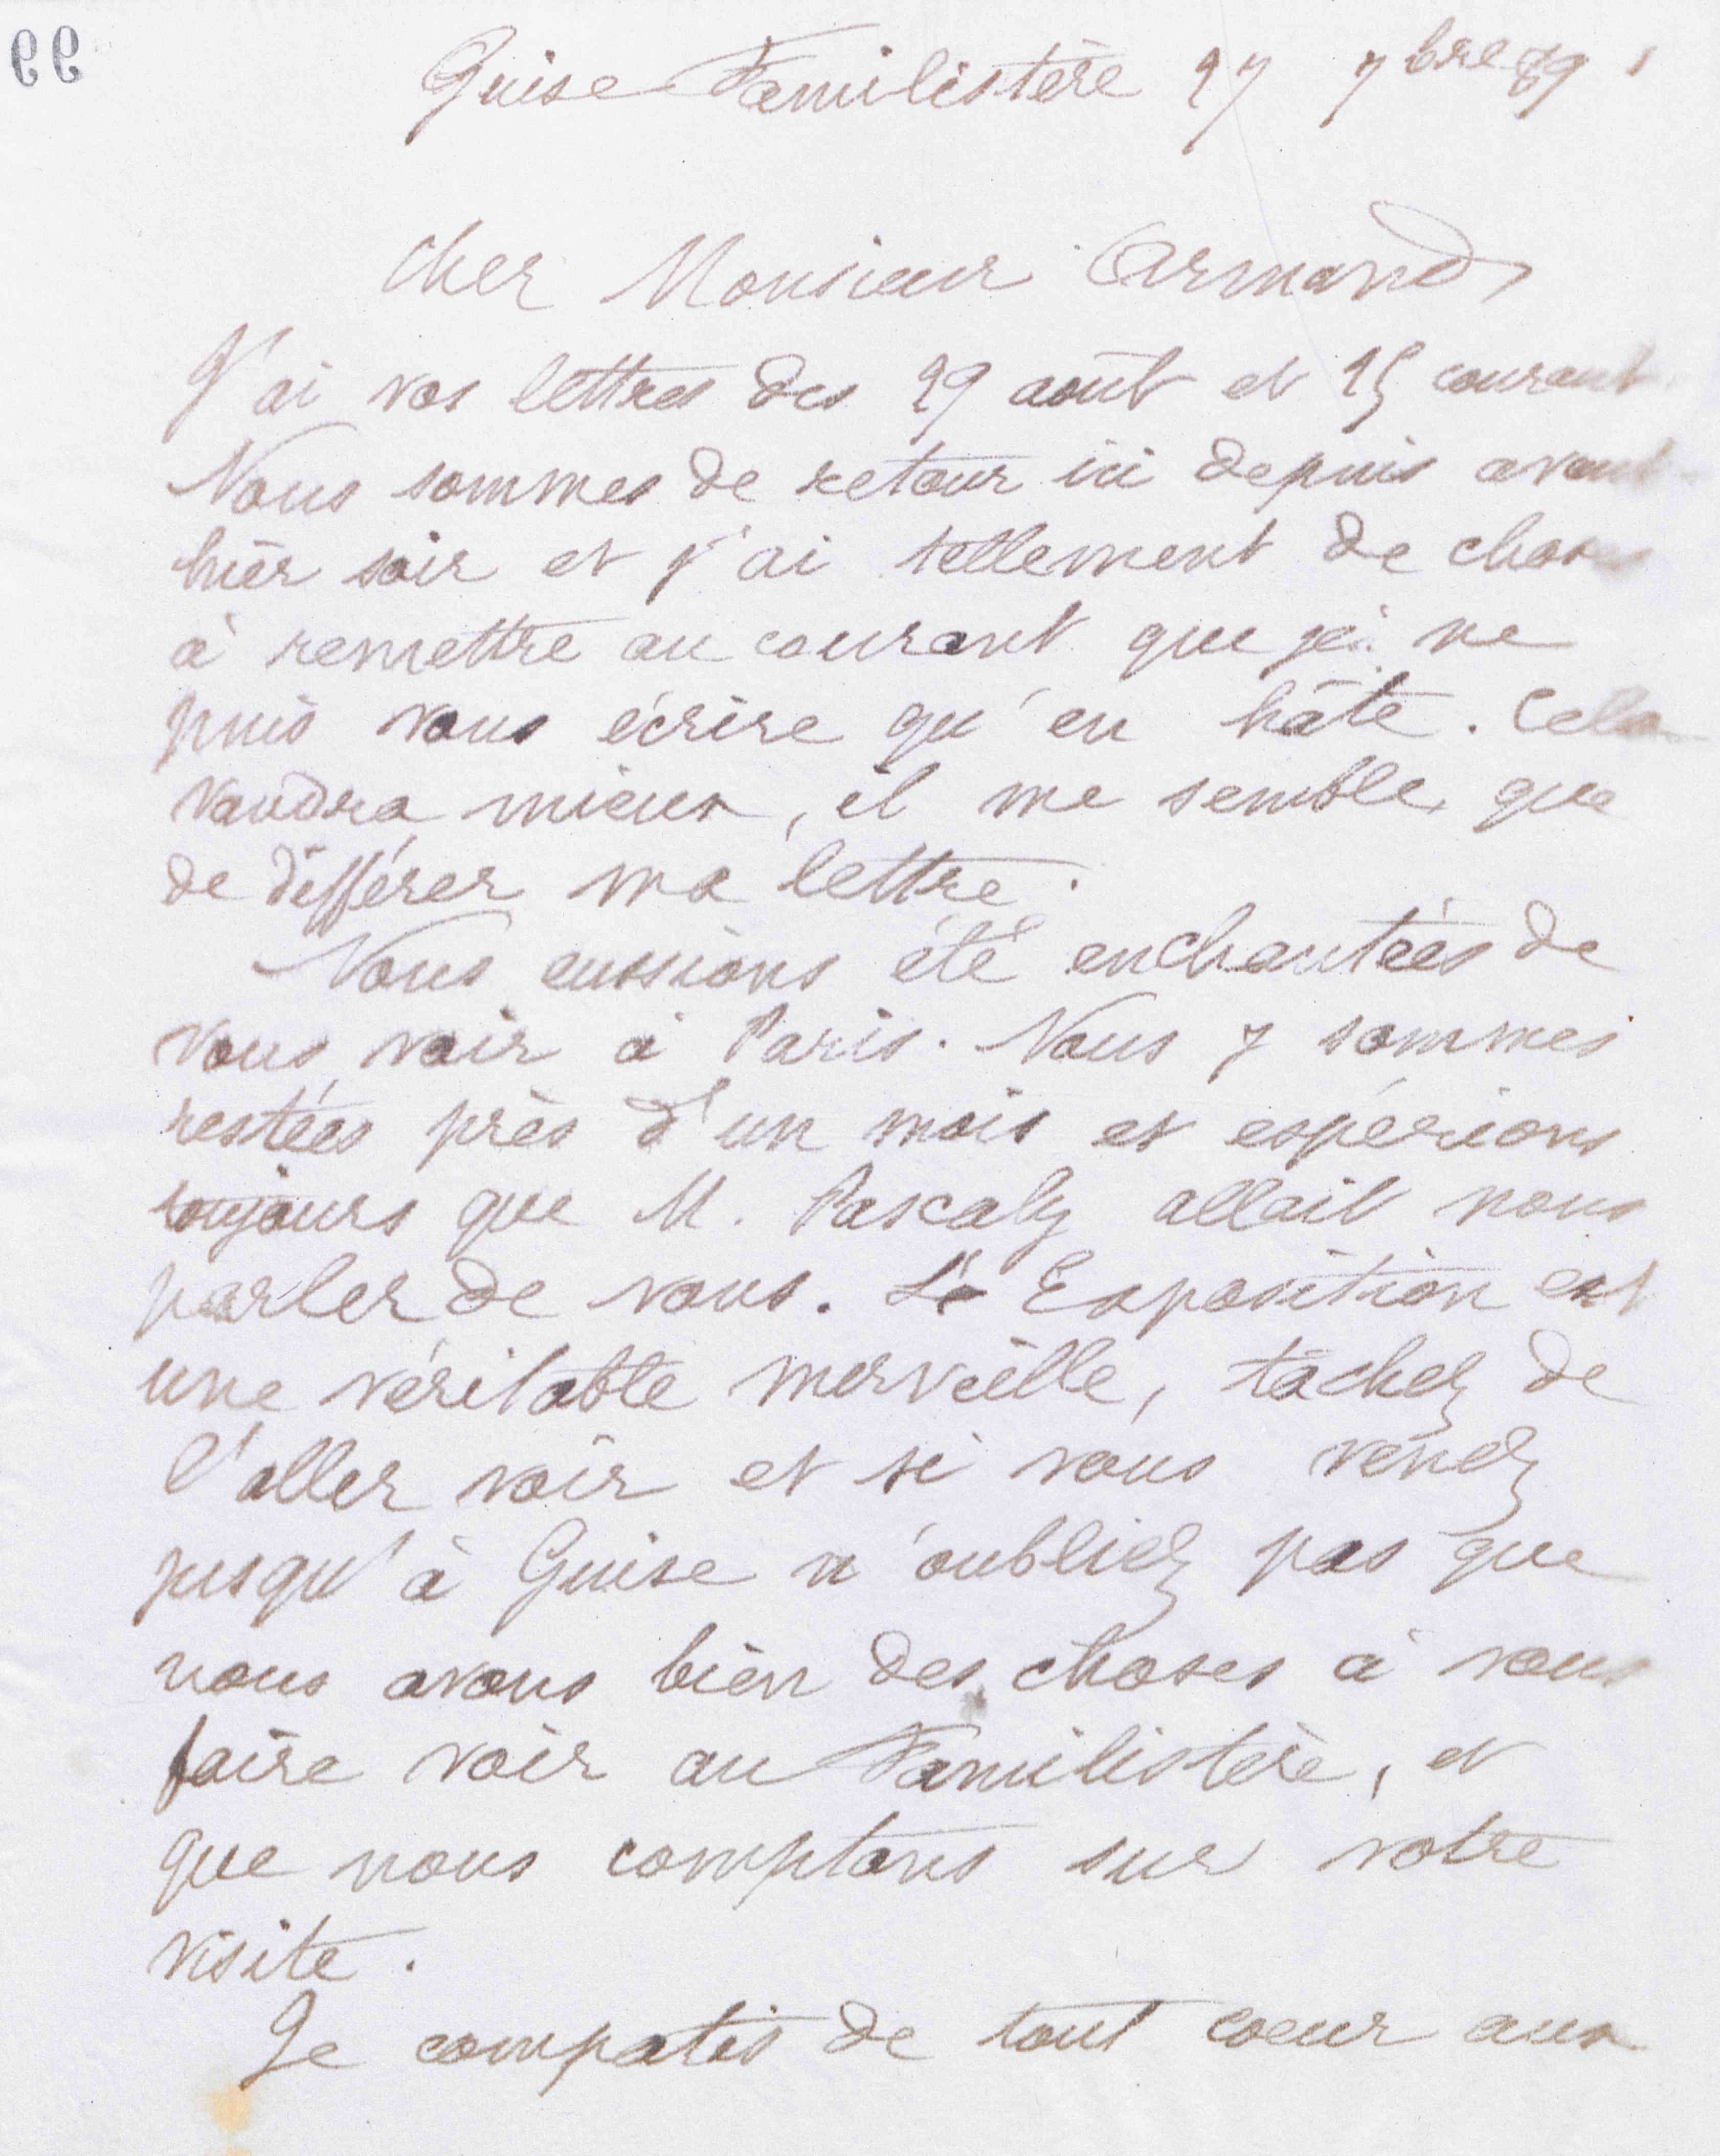 99
Guise Familistère 27 7bre 89
Cher Monsieur Armand,
J'ai vos lettres des 29 août et 15 courant.
Nous sommes de retour ici depuis avant
hier soir et j'ai tellement de choses
à remettre au courant que je ne
puis vous écrire qu'en hâte. Cela
vaudra mieux, il me semble, que
de différer ma lettre.
Nous eussions été enchantées de
vous voir à Paris. Nous y sommes
restées près d'un mois et espérions
toujours que M. Pascaly allait nous
parler de vous. L'Exposition est
une véritable merveille, tâchez de
l'aller voir et si vous venez
jusqu'à Guise n'oubliez pas que
nous avons bien des choses à vous
faire voir au Familistère, et
que nous comptons sur votre
visite.
Je compatis de tout coeur aux